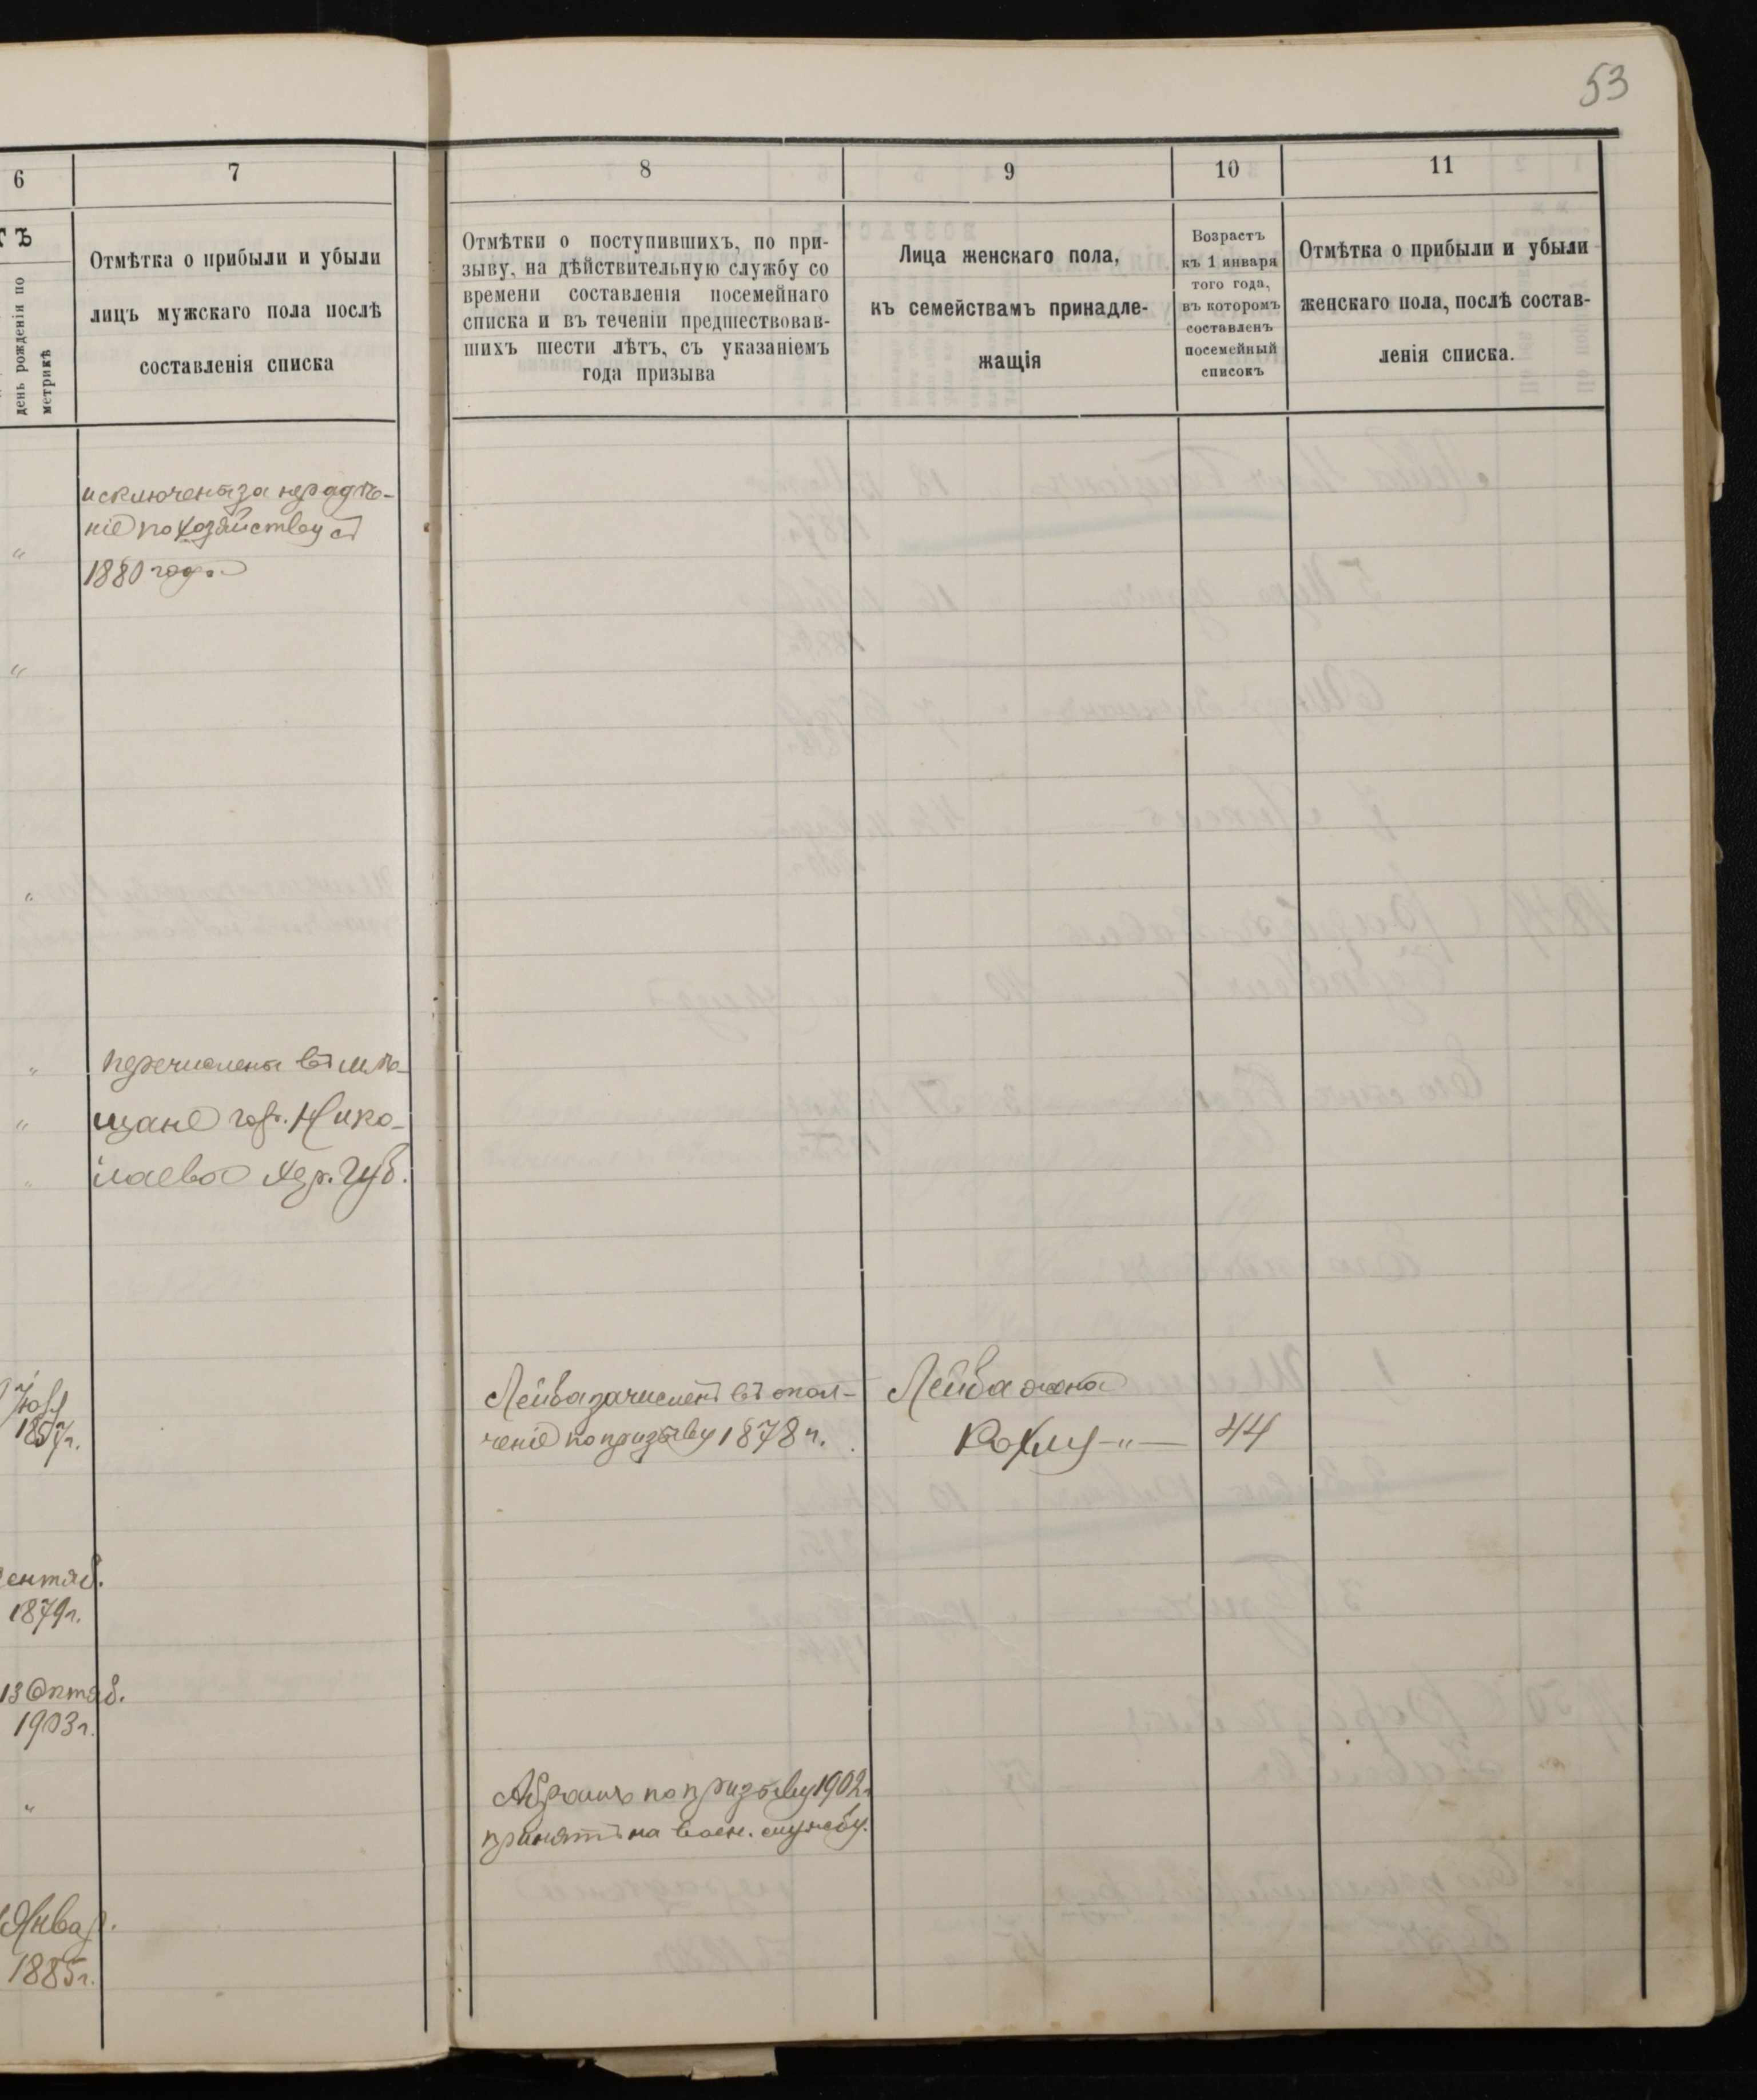 53
6
7
8
9
10
11
ТЪ
день рожденія по
метрикѣ
Отмѣтка о прибыли и убыли
лицъ мужскаго пола послѣ
составленія списка
Отмѣтки о поступившихъ, по при-
зыву, на дѣйствительную службу со
времени составленія посемейнаго
списка и въ теченіи предшествовав-
шихъ шести лѣтъ, съ указаніемъ
года призыва
Лица женскаго пола,
къ семействамъ принадле-
жащія
Возрастъ
къ 1 января
того года,
въ которомъ
составленъ
посемейный
списокъ
Отмѣтка о прибыли и убыли
женскаго пола, послѣ состав-
ленія списка.
исключенъ за нерадѣ-
ніе по хозяйству съ
1880 года
"
"
"
" перечисленъ въ мѣ-
" щане гор. Нико-
" лаева Хер. Губ.
1857г.
Лейба зачисленъ въ опол-
ченіе по призыву 1878 г.
Лейба жена
Рохля -"- 44
ентяб.
1879г.
13 Октяб.
1903г.
"
Абрамъ по призыву 1902г
принятъ на воен. службу.
Январ.
1885г.